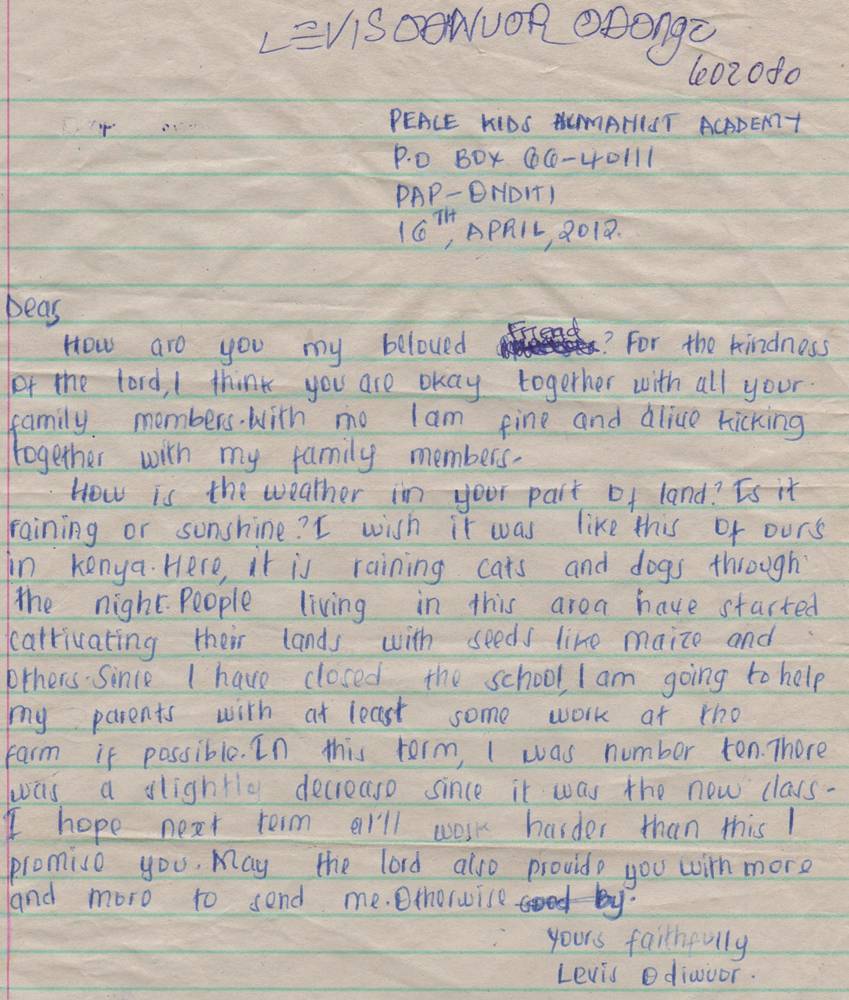 LEVIS ODIWUOR ODONGO
602080
PEACE KIDS HUMANIST ACADEMY
P.O BOX 66-40111
PAP-ONDITI
16TH, APRIL, 2012.
Dear,
How are you my beloved Friend? For the kindness
of the lord, I think you are okay together with all your
family members. With me I am fine and alive kicking
together with my family members.
How is the weather in your part of land? Is it
raining or sunshine? I wish it was like this of ours
in kenya. Here, it is raining cats and dogs through
the night. People living in this area have started
caltivating their lands with seeds like maize and
others. Since I have closed the school, I am going to help
my parents with at least some work at the
farm if possible. In this term, I was number ten. There
was a slightly decrease since it was the new class.
I hope next term al'll work harder than this I
promise you. May the lord also provide you with more
and more to send me. Otherwise good by.
Yours faithfully
Levis Odiwuor.